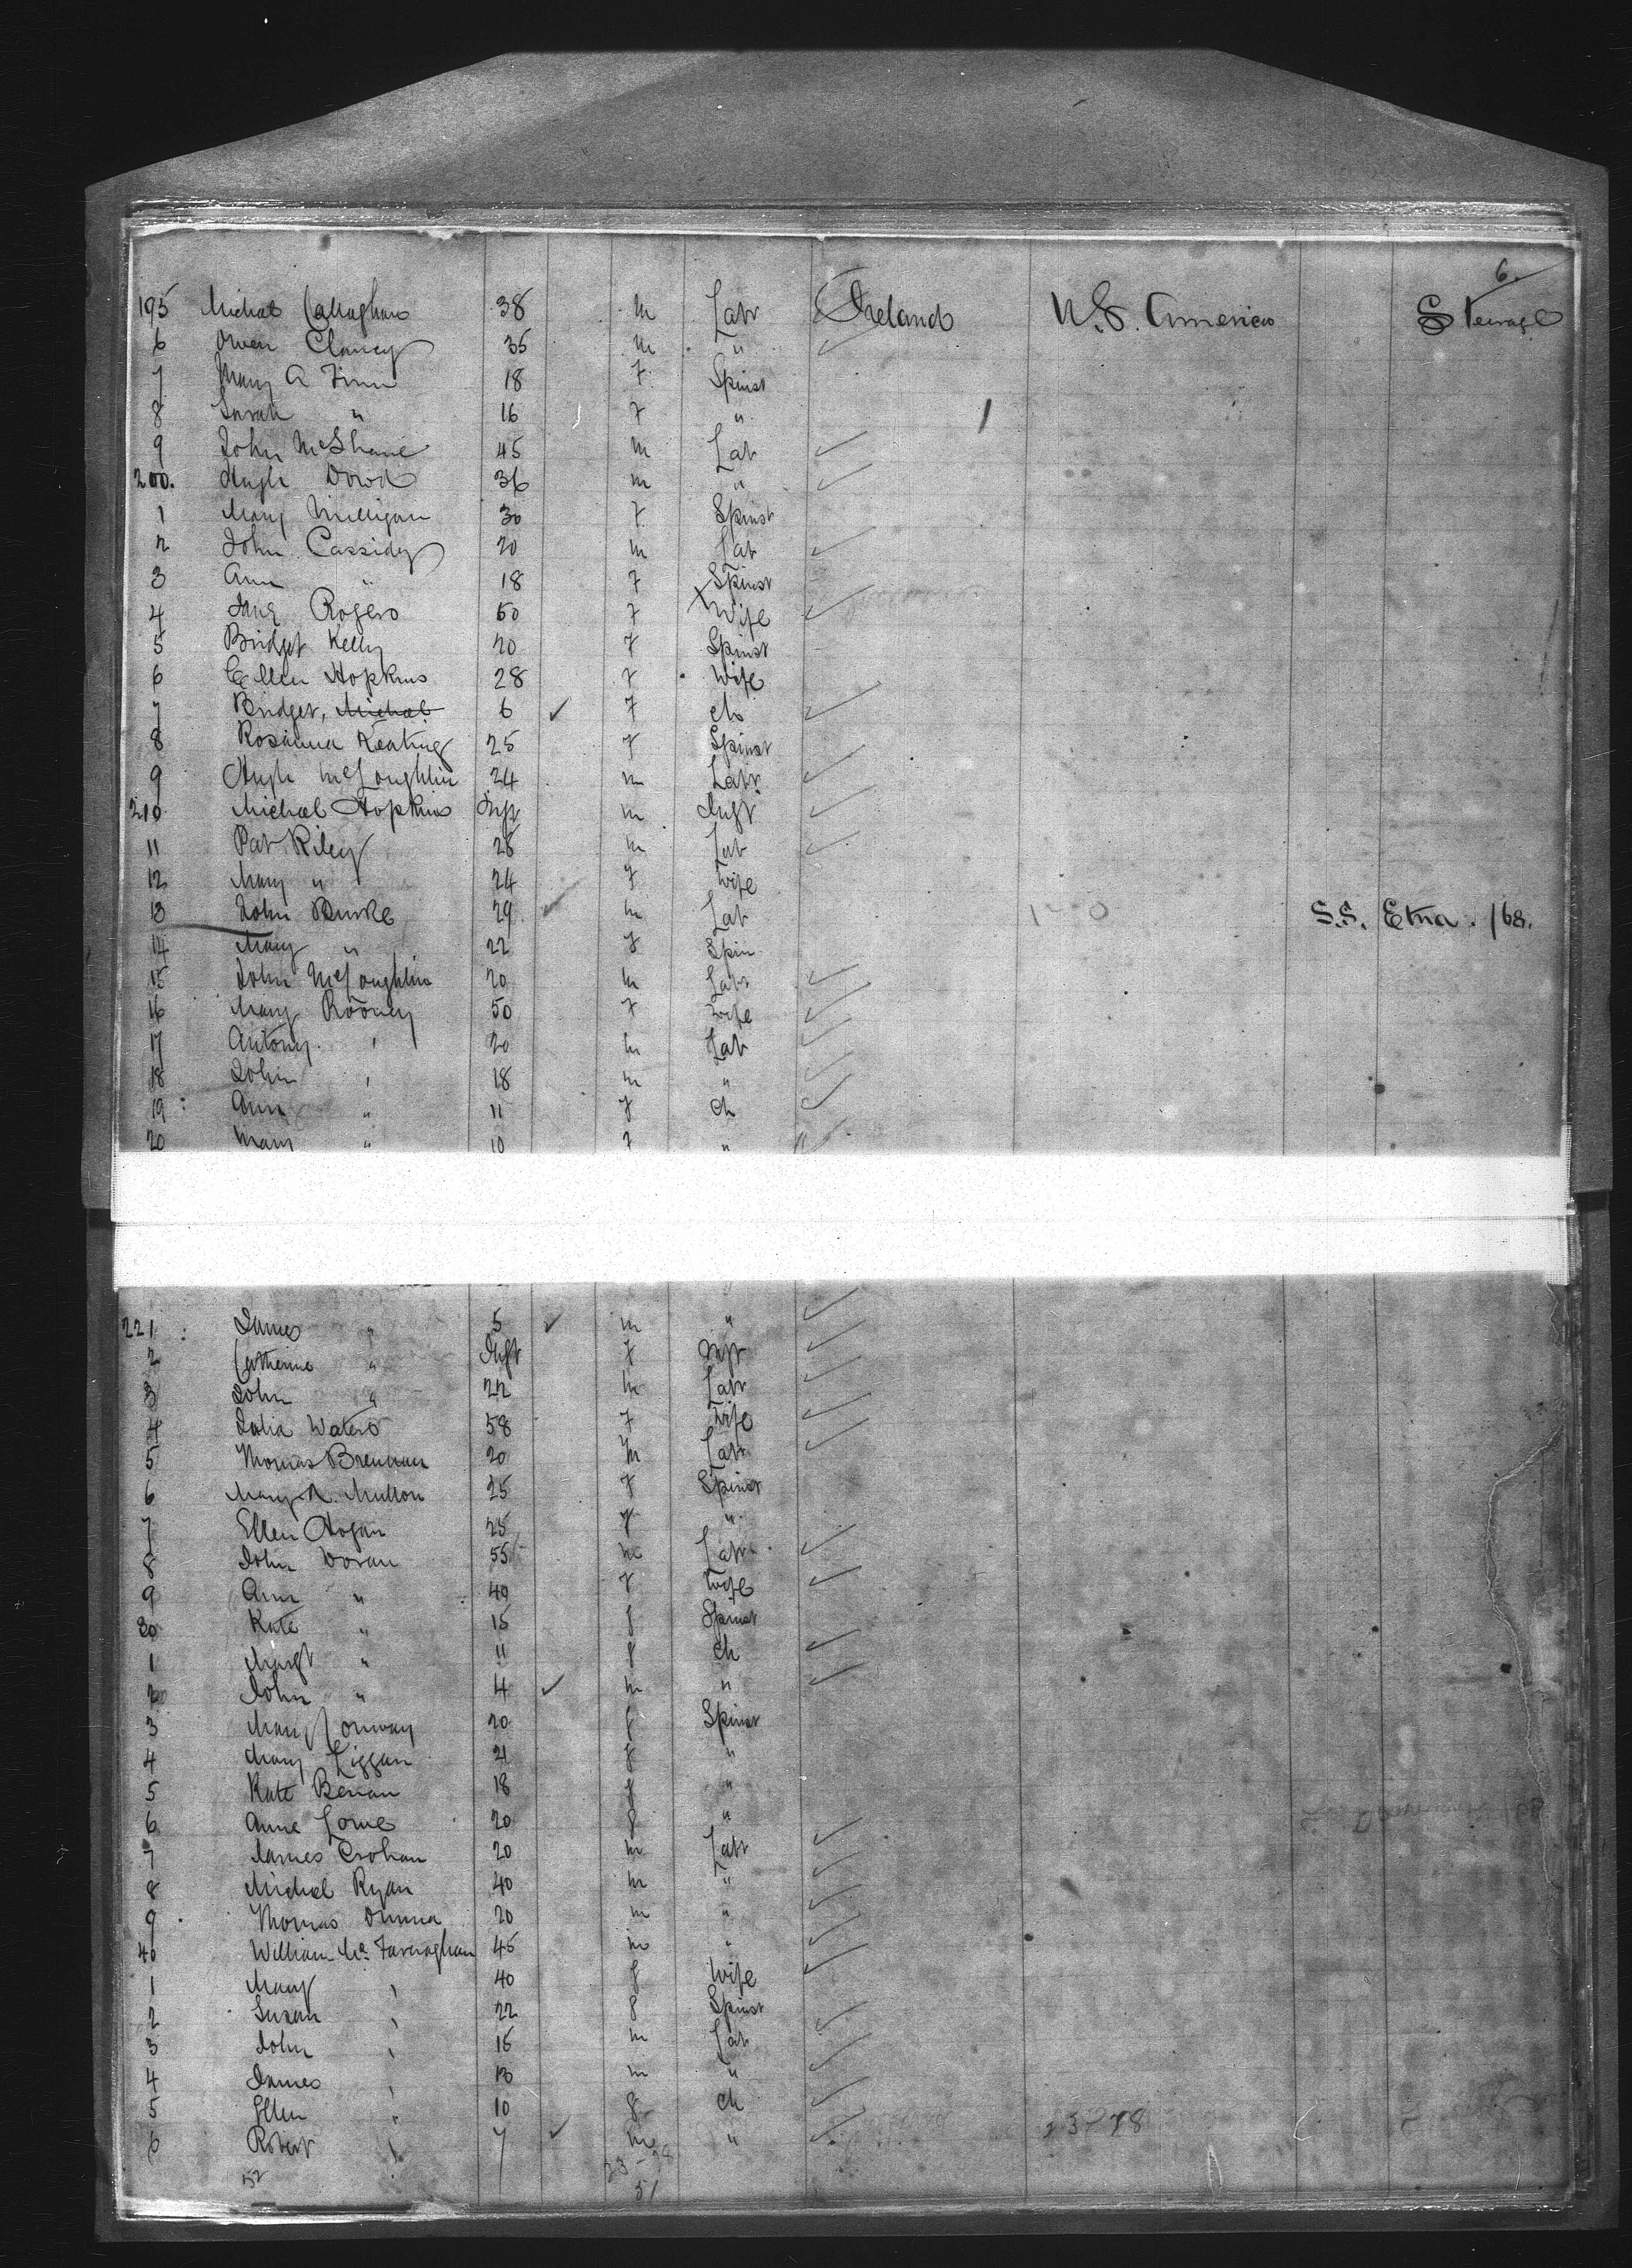 6
195 Michal Callaghan 38 m Labr Ireland U.S. America Steerage
6 Owen Clancy 35 m "
7 Mary A Finn 18 F Spinst
8 Sarah " 16 F "
9 John McShane 45 m Lab
200. Hugh Dowd 36 m "
1 Mary Milligan 30 F Spinst
2 John Cassidy 20 m Lab
3 Ann " 18 F Spinst
4 Jane Rogers 50 F Wife
5 Bridget Kelly 20 F Spinst
6 Ellen Hopkins 28 F Wife
7 Bridget, Michal 6 F ch
8 Rosanna Keating 25 F Spinst
9 Hugh McLoughlin 24 m Labr
210 Michael Hopkins Inft m Inft
11 Pat Riley 28 m Lab
12 Mary " 24 F Wife
13 John Burke 29 m Lab S.S. Etna. /68.
14 Mary " 22 F Spin
15 John McLoughlin 20 m Labr
16 Mary Rooney 50 F Wife
17 Antony " 20 m Lab
18 John " 18 m "
19 Ann " 11 F ch
20 Mary " 10 F "
221 James " 5 m "
2 Catherine " Inft F Inft
3 John " 22 m Labr
4 Julia Waters 58 F Wife
5 Thomas Brennan 20 M Labr
6 Mary A. Mullon 25 F Spinst
7 Ellen Hogan 25 F "
8 John Doran 55 m Labr
9 Ann " 40 F Wife
30 Kate " 15 f Spinst
1 Margt " 11 f ch
2 John " 4 m "
3 Mary Conway 20 f Spinst
4 Mary Liggan 21 F "
5 Kate 18 f "
6 Anne Lowe 20 f "
7 James Crohan 20 m Labr
8 Michel Ryan 40 m "
9 Thomas 20 m "
40 William 45 m "
1 Mary " 40 f Wife
2 Susan " 22 f Spinst
3 John " 15 m Lab
4 James " 13 m "
5 Ellen " 10 f ch
6 Robert " 7 m "
52 23-28
51